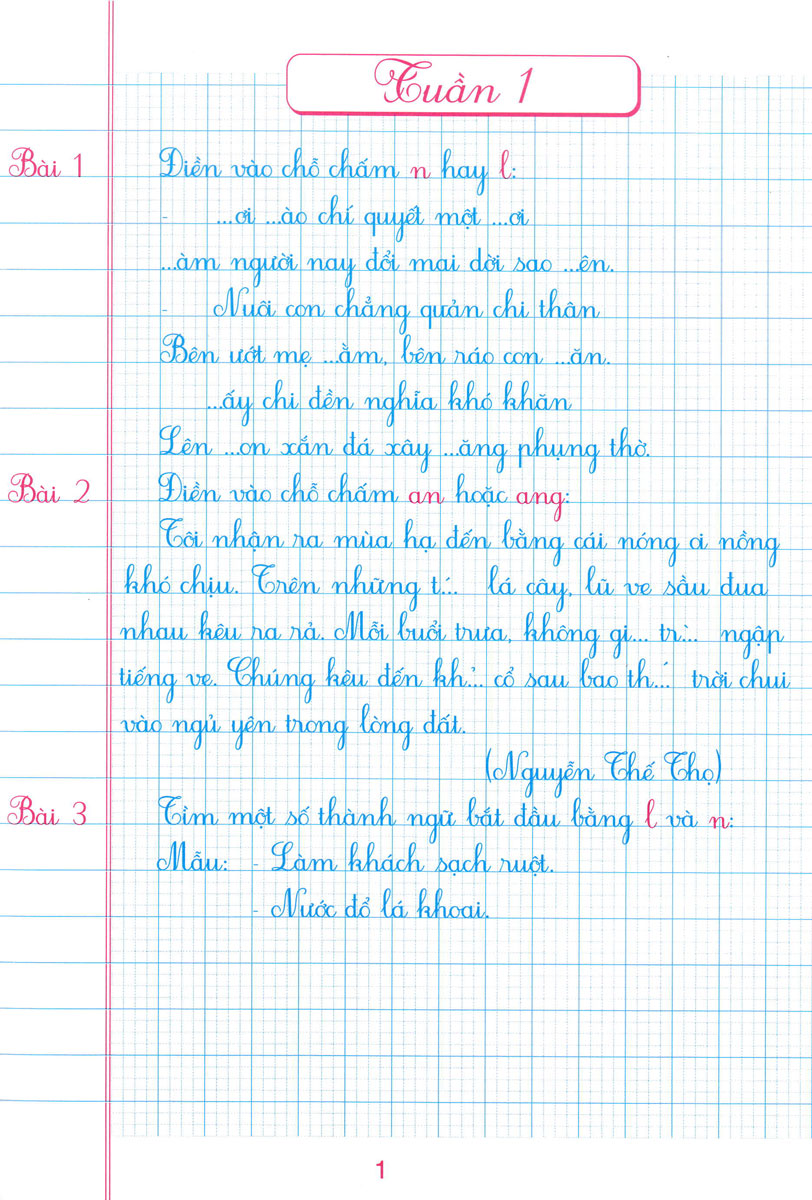 Tuần 1
Bài 1 Điền vào chỗ chấm n hay l:
- ...ơi ...ào chí quyết một ...ơi
...àm người nay đổi mai dời sao ...ên.
- Nuôi con chẳng quản chi thân
Bên ướt mẹ ...ằm, bên ráo con ...ăn.
...ấy chi đền nghĩa khó khăn
Lên ...on xắn đá xây ...ăng phụng thờ.
Bài 2 Điền vào chỗ chấm an hoặc ang:
Tôi nhận ra mùa hạ đến bằng cái nóng oi nồng
khó chịu. Trên những t´... lá cây, lũ ve sầu đua
nhau kêu ra rả. Mỗi buổi trưa, không gi... tr`... ngập
tiếng ve. Chúng kêu đến kh̉... cổ sau bao th...´ trời chui
vào ngủ yên trong lòng đất.
(Nguyễn Thế Thọ)
Bài 3 Tìm một số thành ngữ bắt đầu bằng l và n:
Mẫu: - Làm khách sạch ruột.
- Nước đổ lá khoai.
1